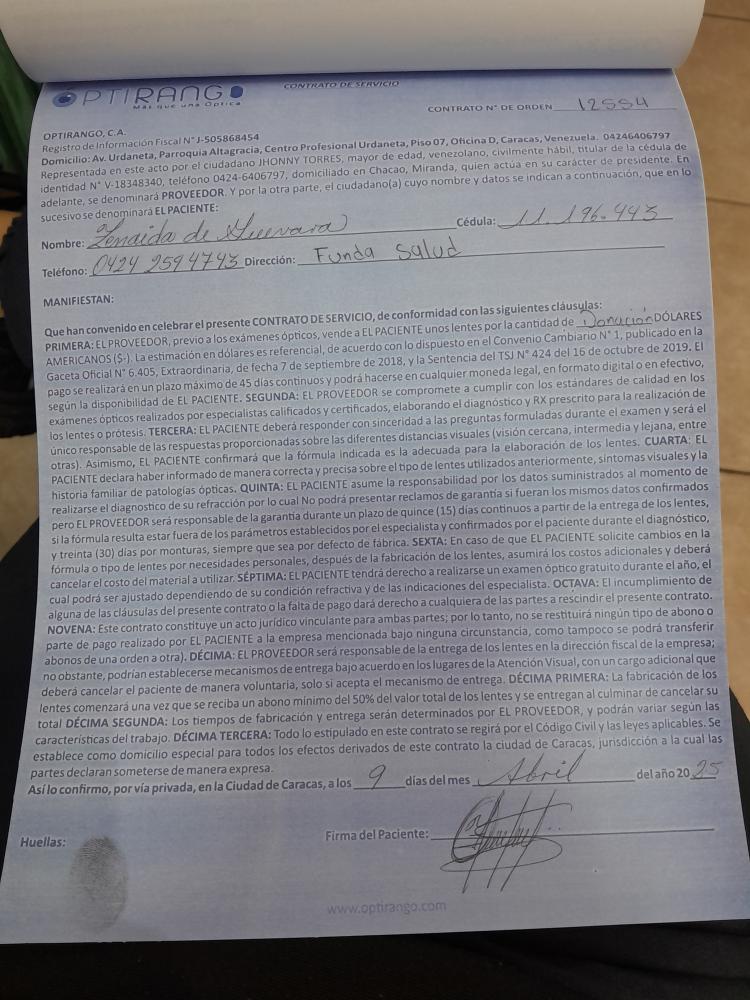 OPTIRANGO
Más que una Óptica
CONTRATO DE SERVICIO
CONTRATO N° DE ORDEN 12554
OPTIRANGO, C.A.
Registro de Información Fiscal N° J-505868454
Domicilio: Av. Urdaneta, Parroquia Altagracia, Centro Profesional Urdaneta, Piso 07, Oficina D, Caracas, Venezuela. 04246406797
Representada en este acto por el ciudadano JHONNY TORRES, mayor de edad, venezolano, civilmente hábil, titular de la cédula de
identidad N° V-18348340, teléfono 0424-6406797, domiciliado en Chacao, Miranda, quien actúa en su carácter de presidente. En
adelante, se denominará PROVEEDOR. Y por la otra parte, el ciudadano(a) cuyo nombre y datos se indican a continuación, que en lo
sucesivo se denominará EL PACIENTE:
Nombre: Zenaida de Guevara Cédula: 11.196.443
Teléfono: 0424 2594743 Dirección: Funda Salud
MANIFIESTAN:
Que han convenido en celebrar el presente CONTRATO DE SERVICIO, de conformidad con las siguientes cláusulas:
PRIMERA: EL PROVEEDOR, previo a los exámenes ópticos, vende a EL PACIENTE unos lentes por la cantidad de Donación DÓLARES
AMERICANOS ($-). La estimación en dólares es referencial, de acuerdo con lo dispuesto en el Convenio Cambiario N° 1, publicado en la
Gaceta Oficial N° 6.405, Extraordinaria, de fecha 7 de septiembre de 2018, y la Sentencia del TSJ N° 424 del 16 de octubre de 2019. El
pago se realizará en un plazo máximo de 45 días continuos y podrá hacerse en cualquier moneda legal, en formato digital o en efectivo,
según la disponibilidad de EL PACIENTE. SEGUNDA: EL PROVEEDOR se compromete a cumplir con los estándares de calidad en los
exámenes ópticos realizados por especialistas calificados y certificados, elaborando el diagnóstico y RX prescrito para la realización de
los lentes o prótesis. TERCERA: EL PACIENTE deberá responder con sinceridad a las preguntas formuladas durante el examen y será el
único responsable de las respuestas proporcionadas sobre las diferentes distancias visuales (visión cercana, intermedia y lejana, entre
otras). Asimismo, EL PACIENTE confirmará que la fórmula indicada es la adecuada para la elaboración de los lentes. CUARTA: EL
PACIENTE declara haber informado de manera correcta y precisa sobre el tipo de lentes utilizados anteriormente, síntomas visuales y la
historia familiar de patologías ópticas. QUINTA: EL PACIENTE asume la responsabilidad por los datos suministrados al momento de
realizarse el diagnostico de su refracción por lo cual No podrá presentar reclamos de garantía si fueran los mismos datos confirmados
pero EL PROVEEDOR será responsable de la garantía durante un plazo de quince (15) días continuos a partir de la entrega de los lentes,
si la fórmula resulta estar fuera de los parámetros establecidos por el especialista y confirmados por el paciente durante el diagnóstico,
y treinta (30) días por monturas, siempre que sea por defecto de fábrica. SEXTA: En caso de que EL PACIENTE solicite cambios en la
fórmula o tipo de lentes por necesidades personales, después de la fabricación de los lentes, asumirá los costos adicionales y deberá
cancelar el costo del material a utilizar. SÉPTIMA: EL PACIENTE tendrá derecho a realizarse un examen óptico gratuito durante el año, el
cual podrá ser ajustado dependiendo de su condición refractiva y de las indicaciones del especialista. OCTAVA: El incumplimiento de
alguna de las cláusulas del presente contrato o la falta de pago dará derecho a cualquiera de las partes a rescindir el presente contrato.
NOVENA: Este contrato constituye un acto jurídico vinculante para ambas partes; por lo tanto, no se restituirá ningún tipo de abono o
parte de pago realizado por EL PACIENTE a la empresa mencionada bajo ninguna circunstancia, como tampoco se podrá transferir
abonos de una orden a otra). DÉCIMA: EL PROVEEDOR será responsable de la entrega de los lentes en la dirección fiscal de la empresa;
no obstante, podrían establecerse mecanismos de entrega bajo acuerdo en los lugares de la Atención Visual, con un cargo adicional que
deberá cancelar el paciente de manera voluntaria, solo si acepta el mecanismo de entrega. DÉCIMA PRIMERA: La fabricación de los
lentes comenzará una vez que se reciba un abono mínimo del 50% del valor total de los lentes y se entregan al culminar de cancelar su
total DÉCIMA SEGUNDA: Los tiempos de fabricación y entrega serán determinados por EL PROVEEDOR, y podrán variar según las
características del trabajo. DÉCIMA TERCERA: Todo lo estipulado en este contrato se regirá por el Código Civil y las leyes aplicables. Se
establece como domicilio especial para todos los efectos derivados de este contrato la ciudad de Caracas, jurisdicción a la cual las
partes declaran someterse de manera expresa.
Así lo confirmo, por vía privada, en la Ciudad de Caracas, a los 9 días del mes Abril del año 2025
Huellas:
Firma del Paciente:
www.optirango.com